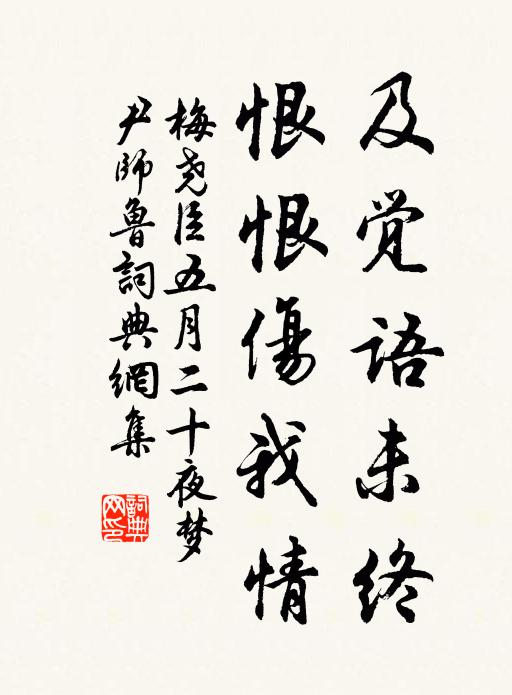 及觉语未终
恨恨傷我情
梅尧臣五月二十夜梦
尹師魯詞典網集
詞典网印